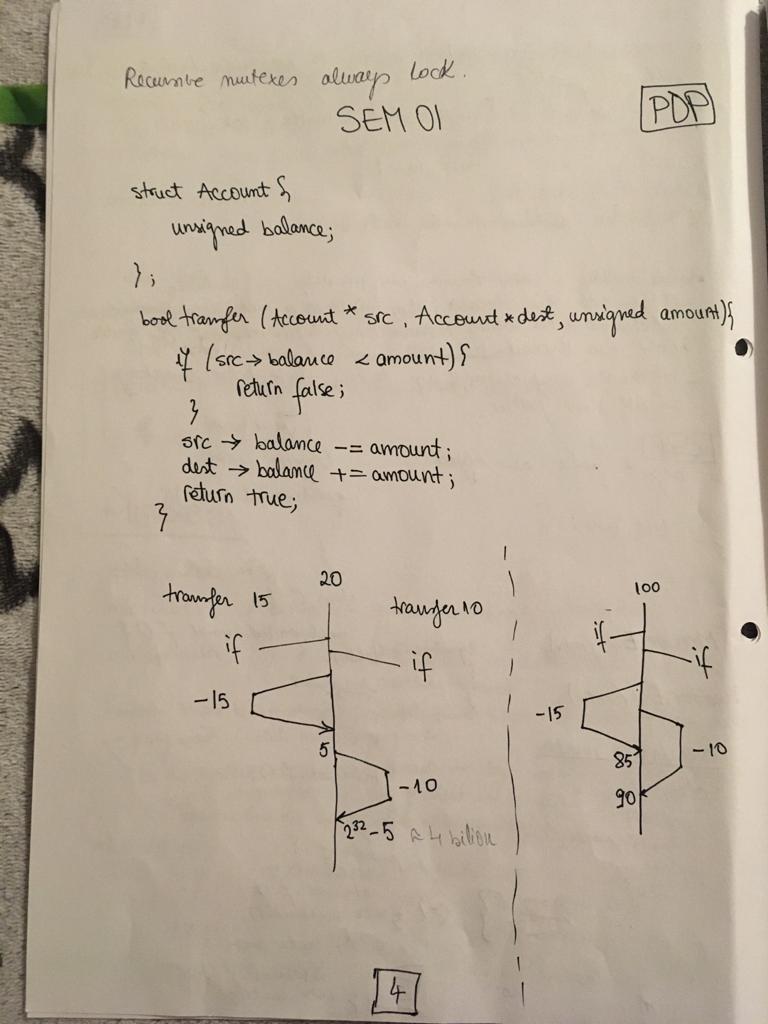 Recursive mutexes always lock.
SEM 01
PDP
struct Account {
unsigned balance;
};
bool transfer (Account * src, Account * dest, unsigned amount) {
if (src → balance < amount) {
return false;
}
src → balance -= amount;
dest → balance += amount;
return true;
}
transfer 15
20
transfer 10
if
if
-15
5
-10
2³²-5 ≈ 4 bilion
100
if
if
-15
85
-10
90
4